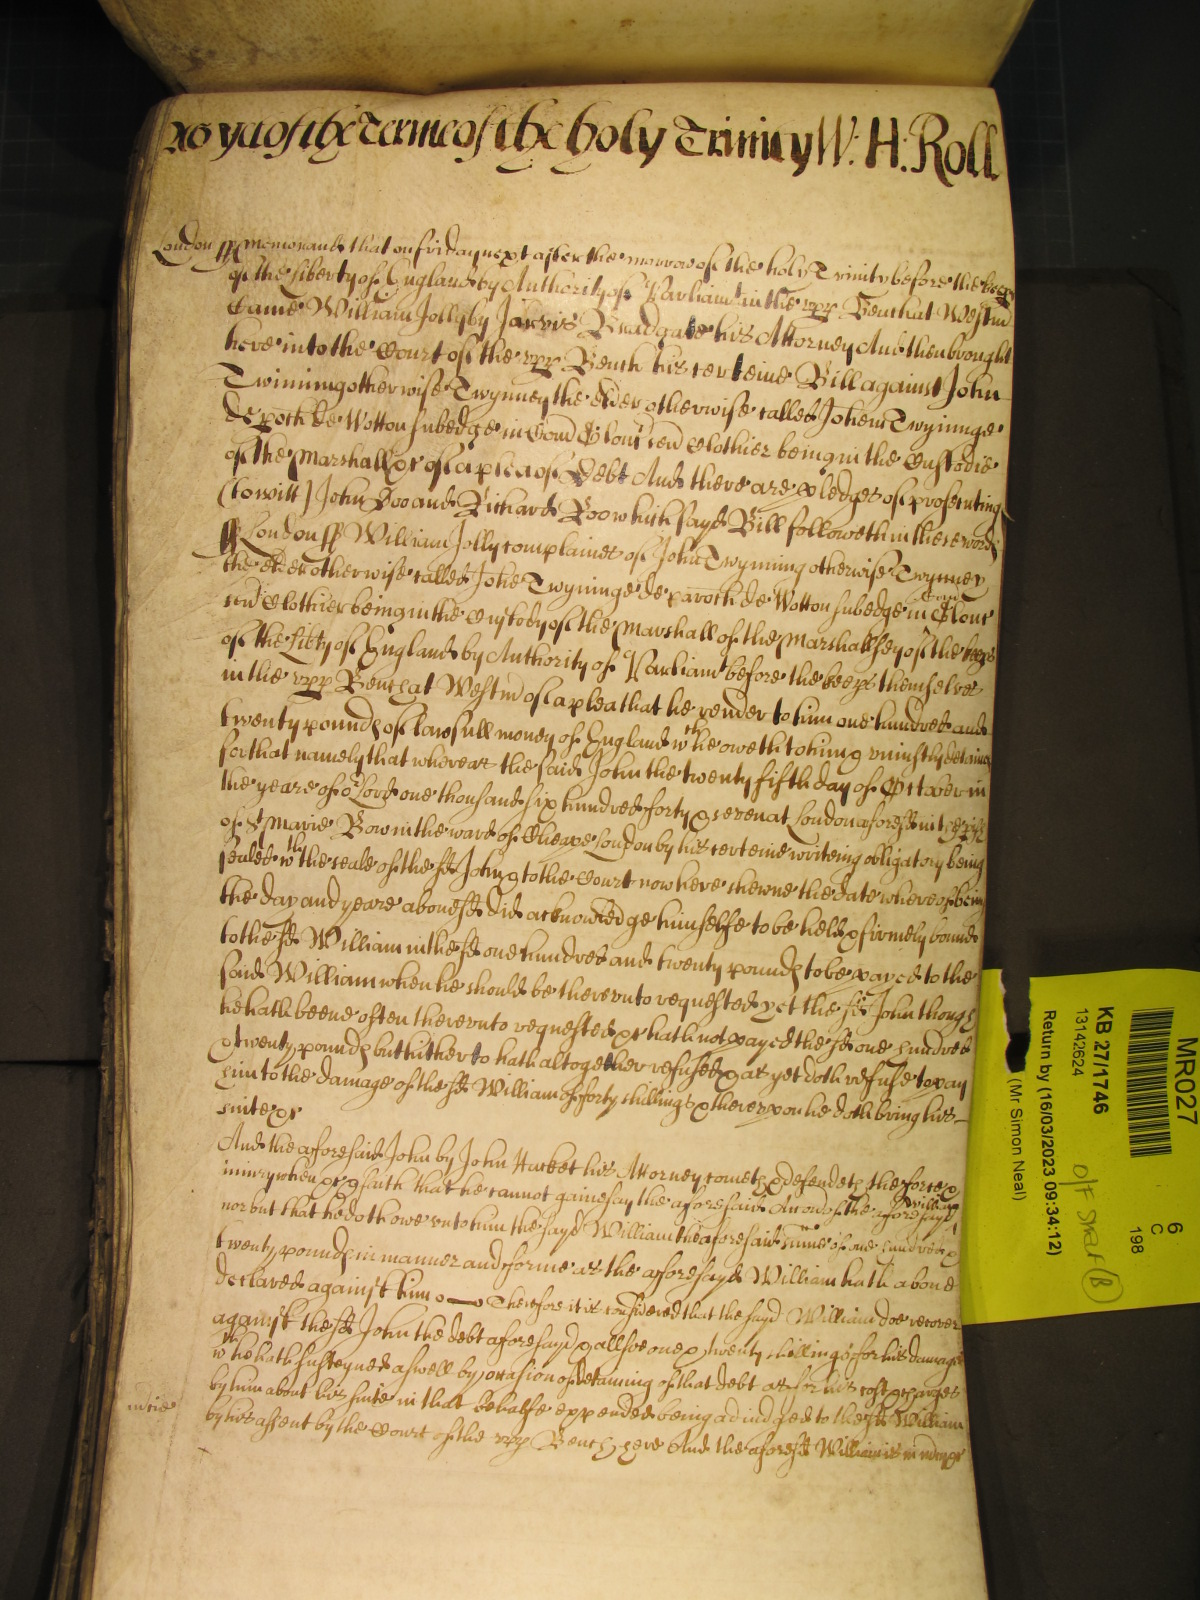 yet of the Terme of the holy Trinity W: H: Roll
London ss Memorand that on friday next after the morrow of the holy Trinity before the keeps
of the liberty of England by Authority of Parliamt in the upp Bench at Westm
Came William Jolly by Jarvis Bradgate his Attorney And then brought
here into the Court of the upp Bench his certeine Bill against John
Twinning otherwise Twynney the elder otherwise called Johem Twyninge
de poch de Wotton subedge in Com Glouc Clothier being in the Custodie
of the Marshall &c of a plea of Debt And there are pledges of prosecuting
(towitt) John Doo and Richard Roo which sayd Bill followeth in these words
ss London ss William Jolly complaines of John Twynning otherwise Twynney
the elder otherwise called Johe Twyninge de paroch de Wotton subedge in Com Glouc
Clothier being in the Custody of the Marshall of the Marshallsey of the keeps
of the Libty of England by Authority of Parliamt before the keeps themselves
in the upp Bench at Westm of a plea that he render to him one hundred and
twenty pounds of lawfull money of England wch he oweth to him & uniustly detaines
for that namely that whereas the said John the twenty fifth day of October in
the yeare of or Lord one thousand six hundred forty & seven at London aforesd in
of St Marie Bow in the ward of Cheape London by his certeine writeing obligatory being
sealed wth the seale of the sd John & to the Court now here shewne the date whereof being
the day and yeare abovesd did acknowledge himselfe to be held & firmely bound
to the sd William in the sd one hundred and twenty pounds to be payed to the
said William when he should be thereunto requested yet the sd John though
he hath beene often thereunto requested &c hath not payed the sd one hundred
& twenty pounds but hitherto hath altogether refused & as yet doth refuse to pay
him to the damage of the sd William of forty shillings & thereupon he doth bring his
suite &c
And the aforesaid John by John Hacket his Attorney cometh & defendeth the force &
iniury when &c & saith that he cannot gainesay the aforesaid accon of the aforesayd William
nor but that he doth owe unto him the sayd William the aforesaid summe of one hundred &
twenty pounds in manner and forme as the aforesayd William hath above
declared against him Therefore it is considered that the sayd William doe recover
against the sd John the debt aforesayd & allsoe one & twenty shillings for his damages
wch he hath susteyned aswell by occasion of detaining of that debt as for his cost & charges
by him about his suite in that behalfe expended being adiudged to the sd William
by his assent by the Court of the upp Bench here And the aforesd William is in mercy &c
MR027
KB 27/1746
13142624
Return by (16/03/2023 09:34:12)
(Mr Simon Neal)
6
C
198
O/F